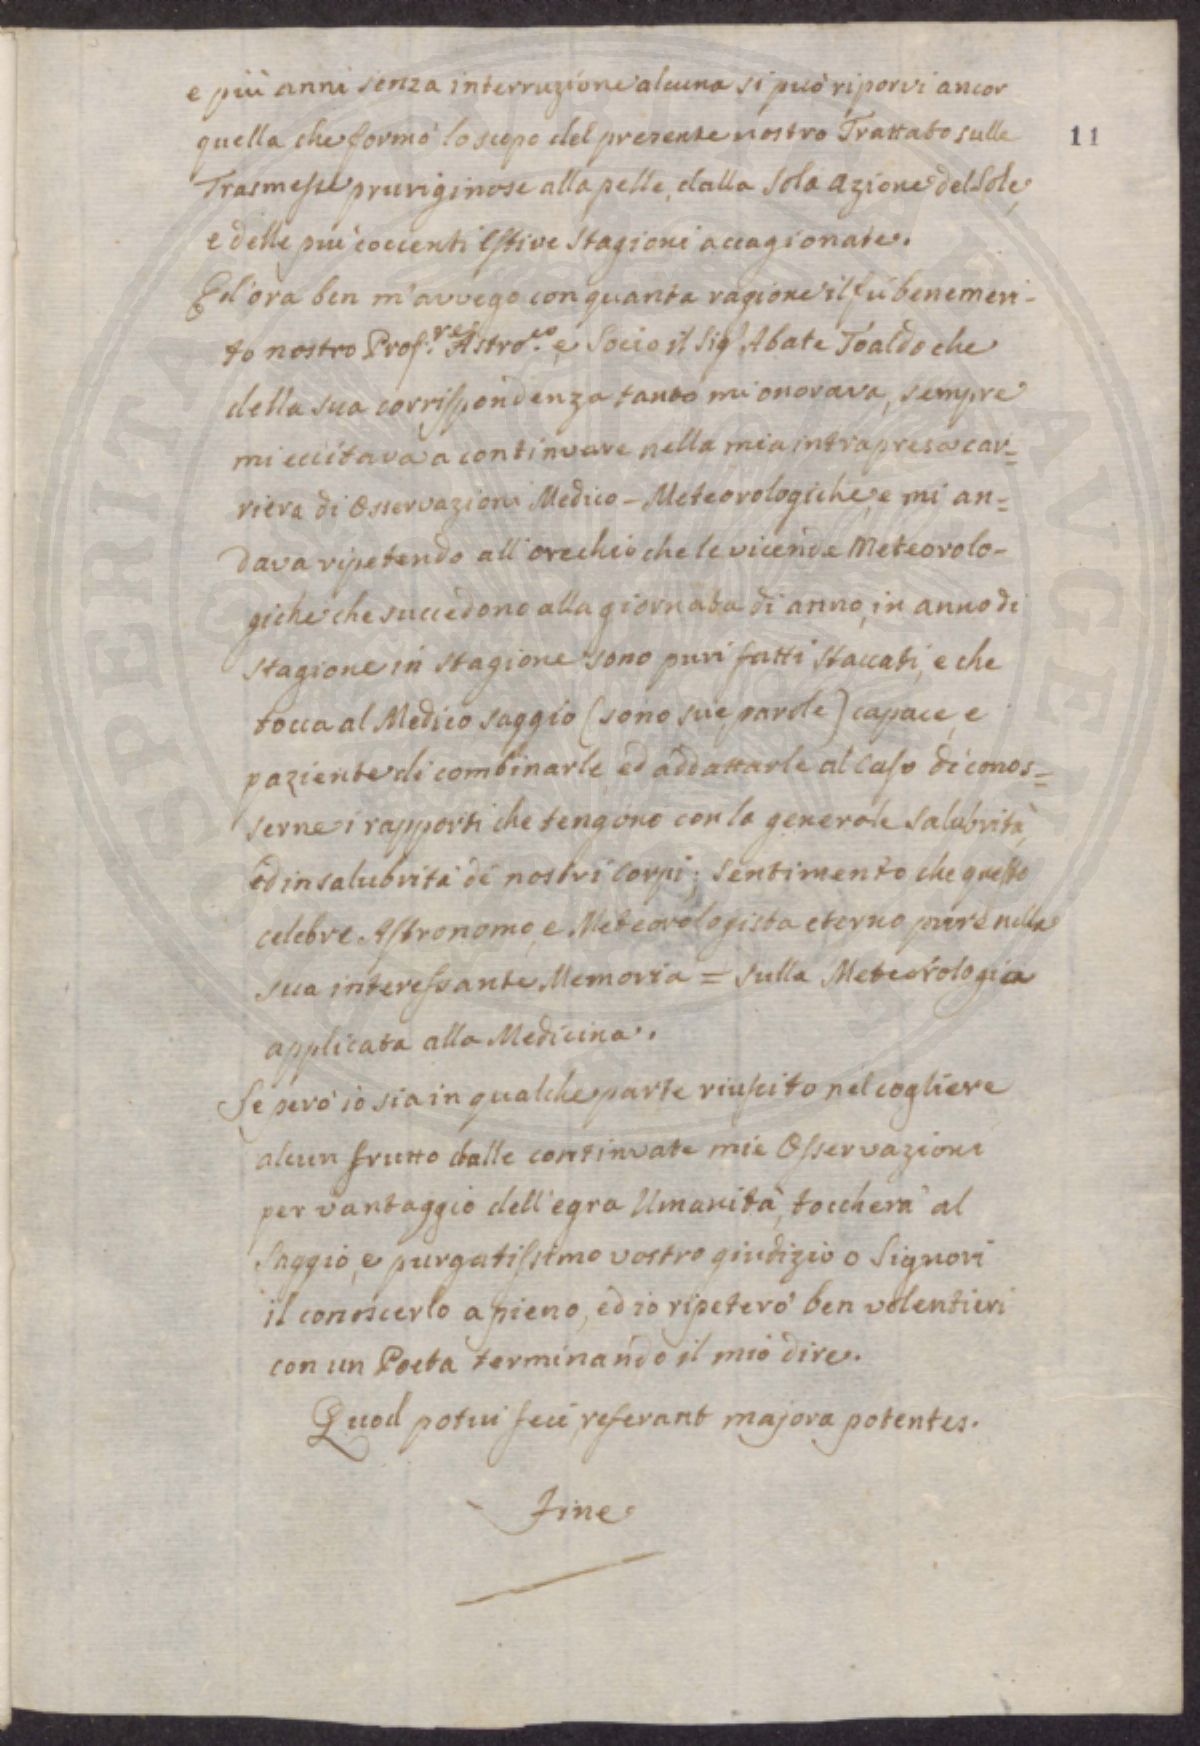 e più anni senza interruzione alcuna si può riporvi ancor
quella che formò lo scopo del presente nostro Trattato sulle
11
Trasmesse pruriginose alla pelle, dalla sola azione del Sole,
e delle più coccenti Estive Stagioni accagionate.
Ed'ora ben m'avvego con quanta ragione il fù benemeri-
to nostro Prof.re Astro.co, e Socio il Sig.r Abate Toaldo che
della sua corrispondenza tanto mi onorava, sempre
mi eccitava a continuare nella mia intrapresa car=
riera di Osservazioni Medico-Meteorologiche, e mi an=
dava ripetendo all'orecchio che le vicende Meteorolo-
giche che succedono alla giornata di anno, in anno di
stagione in stagione sono puri fatti staccati, e che
tocca al Medico saggio (sono sue parole) capace, e
paziente di combinarle, ed addattarle al caso di conos=
serne i rapporti che tengono con la generale salubrità,
ed insalubrità de nostri corpi; sentimento che questo
celebre Astronomo, e Meteorologista eterno pure nella
sua interessante Memoria = sulla Meteorologia
applicata alla Medicina.
Se però io sia in qualche parte riuscito nel cogliere
alcun frutto dalle continuate mie Osservazioni
per vantaggio dell'egra Umanità, toccherà al
saggio, e purgatissimo vostro giudizio o Signori
il conoscerlo a pieno, ed io ripeterò ben volentieri
con un Poeta terminando il mio dire.
Quod potui feci, referant majora potentes.
Fine